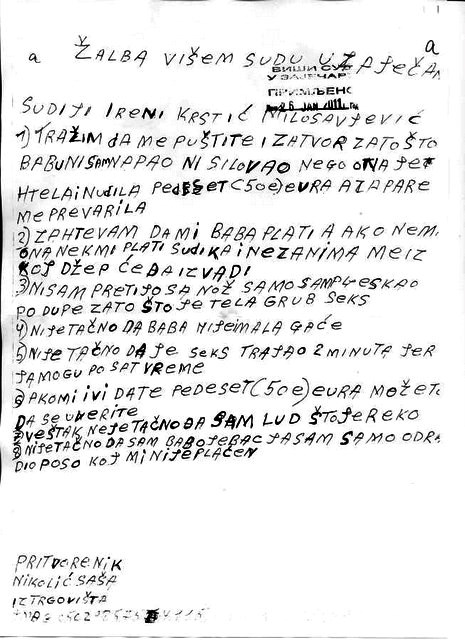 a ŽALBA VIŠEM SUDU U ZAJEČAR a
ВИШИ СУД
У ЗАЈЕЧАР
ПРИМЉЕНО
26 JAN
SUDIJI IRENI KRSTIĆ MILOSAVJEVIĆ
1) TRAŽIM DA ME PUŠTITE IZATVOR ZATO ŠTO
BABU NISAM NAPAO NI SILOVAO NEGO ONA JE
HTELA I NUDILA PEDESET (50e) EURA A ZAPARE
ME PREVARILA
2) ZAHTEVAM DA MI BABA PLATI A AKO NEM
ONA NEK MI PLATI SUDIKA I NEZANIMA ME IZ
KOJ DŽEP ĆE DA IZVADI
3) NISAM PRETIJO SA NOŽ SAMO SAMPLJESKAO
PO DUPE ZATO ŠTO JE TELA GRUB SEKS
4) NIJE TAČNO DA BABA NIJE IMALA GAĆE
5) NIJE TAČNO DA JE SEKS TRAJAO 2 MINUTA JER
JA MOGU PO SAT VREME
6) AKO MI I VI DATE PEDESET (50e) EURA MOŽETE
DA SE UVERITE
7) VEŠTAK NEJE TAČNO DA SAM LUD ŠTO JE REKO
8) NIJE TAČNO DA SAM BABO JEBAC JA SAM SAMO ODRA
DIO POSO KOJ MI NIJE PLAĆEN
PRITVORENIK
NIKOLIĆ SAŠA
IZ TRGOVIŠTA